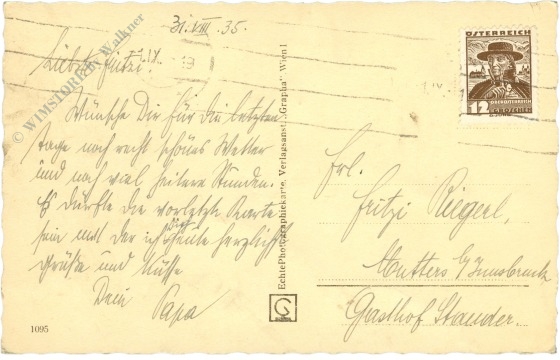 31. VIII. 35.
Liebste Fritzi!
Wünsche Dir für die letzten
Tage noch recht schönes Wetter
und noch viel heitere Stunden.
Es dürfte die vorletzte Karte
sein mit der ich Dich heute herzlichst
Grüße und Küsse
Dein Papa
1095
Echte Photographiekarte. Verlagsanst. „Grapha" Wien I
ÖSTERREICH
12
OBERÖSTERREICH
1.IX.
Frl.
Fritzi Riegerl,
Mutters b/Innsbruck
Gasthof Stauder.
© WIMSTORIEN Walkner